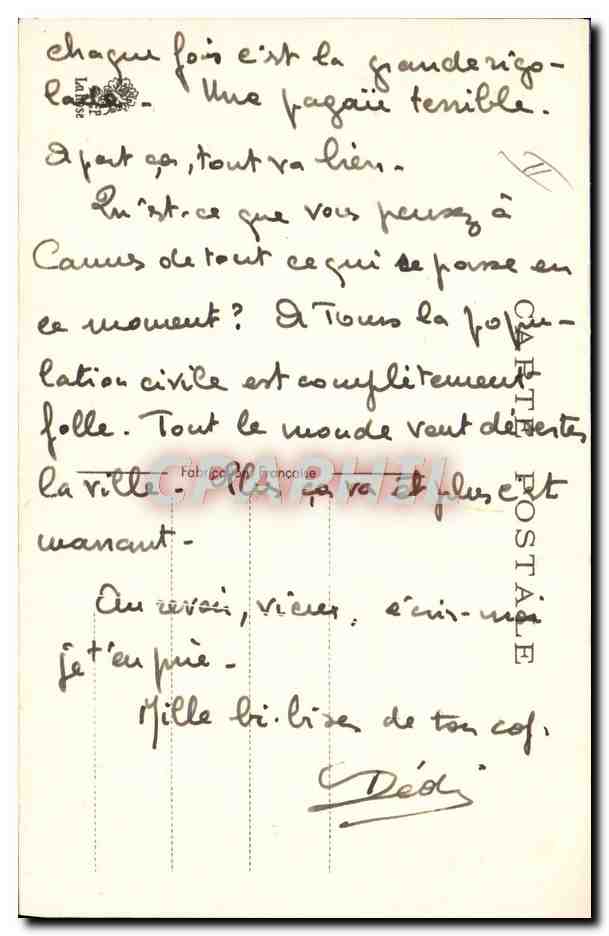 chaque fois c'est la grande rigo-
lade. Une pagaïe terrible.
A part ça, tout va bien.
Qu'est-ce que vous pensez à
Cannes de tout ce qui se passe en
ce moment? A Tours la popu-
lation civile est complètement
folle. Tout le monde veut déserter
la ville. Plus ça va et plus c'est
marrant.
Au revoir, vieux, écris-moi
je t'en prie.
Mille bi-bises de ton cop.
Dédé
CARTE POSTALE
Fabrication Française
CPARHEL
La Rose